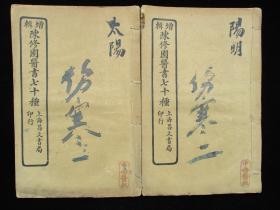 太陽
增輯
陳修園醫書七十種
上海昌文書局
印行
傷寒 一
陽明
增輯
陳修園醫書七十種
上海昌文書局
印行
傷寒 二